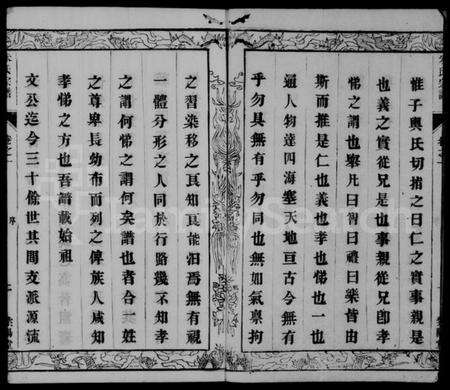 惟子輿氏切指之曰仁之實事親是
也義之實從兄是也事親從兄卽孝
悌之謂也舉凡曰智曰禮曰樂皆由
斯而推是仁也義也孝也悌也一也
通人物達四海塞天地亘古今無有
乎勿具無有乎勿同也無如氣稟拘
之習染移之良知良能汩焉無有視
一體分形之人同於行路幾不知孝
之謂何悌之謂何矣譜也者合 姓
之尊卑長幼布而列之俾族人咸知
孝悌之方也吾譜載始祖
文公迄今三十餘世其間支派源流
序
二